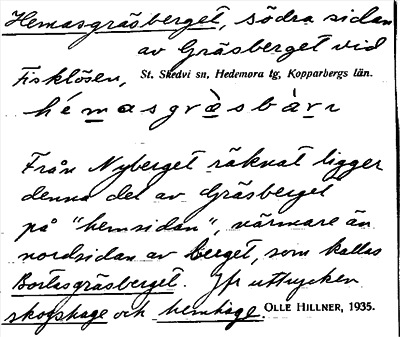 Hemasgräsberget, södra sidan
av Gräsberget vid
Fisklösen, St. Skedvi sn, Hedemora tg, Kopparbergs län.
hémasgràsbàrı
Från Nyberget räknat ligger
denna del av Gräsberget
på "hemsidan", närmare än
nordsidan av berget, som kallas
Bortasgräsberget. Jfr uttrycken
skogshage och hemhage. OLLE HILLNER, 1935.